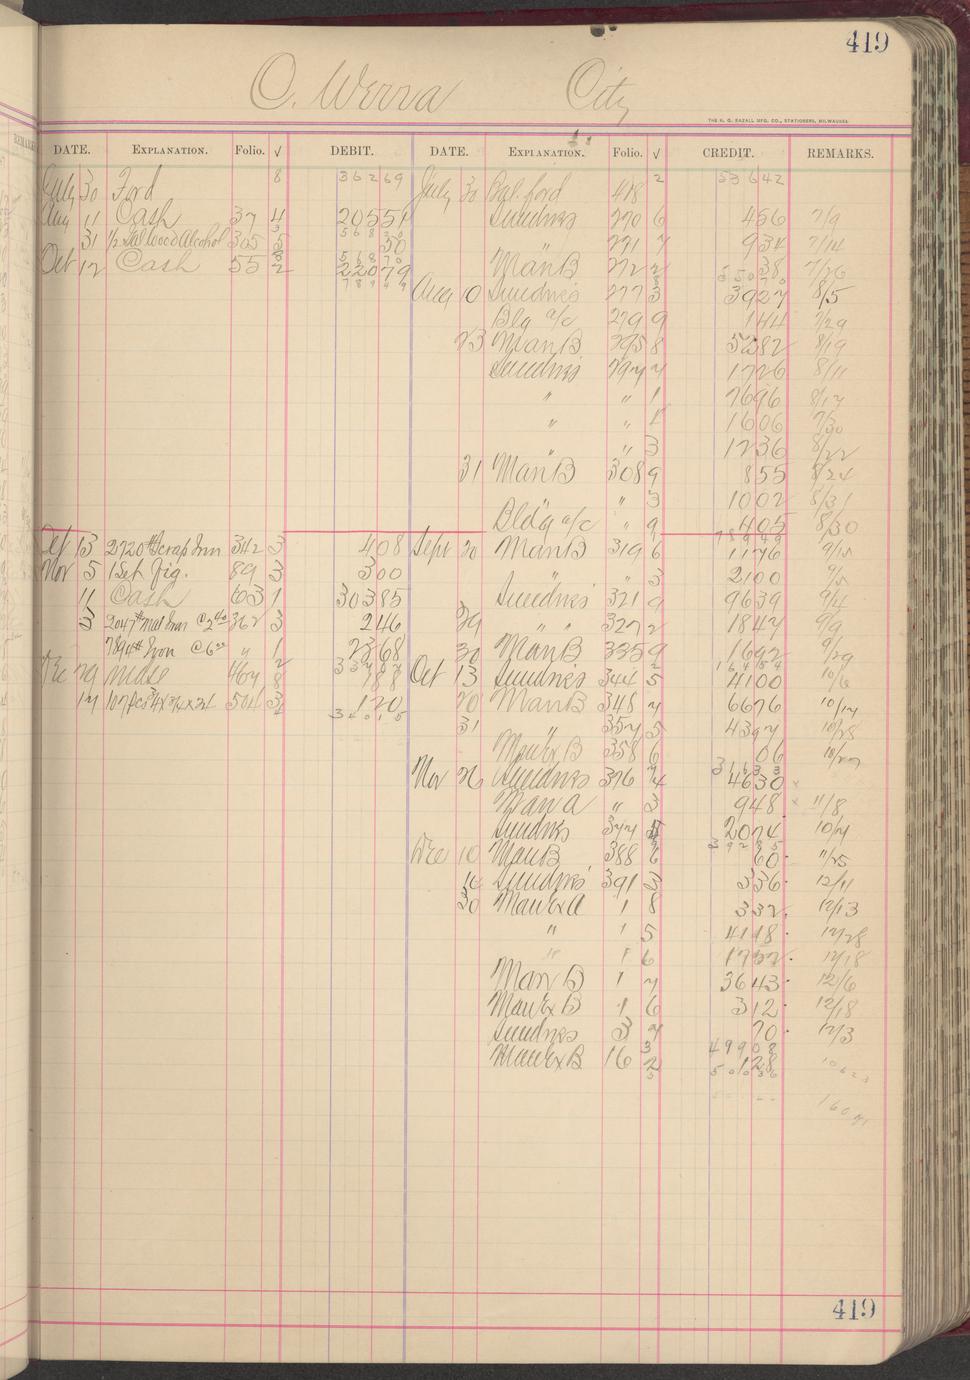 419
O. Werra City
THE H. G. RAZALL MFG. CO., STATIONERS, MILWAUKEE
DATE. EXPLANATION. Folio. √ DEBIT. DATE. EXPLANATION. Folio. √ CREDIT. REMARKS.
July 30 Ford 8 36269 July 30 Bal. ford 418 2 53642
Aug 11 Cash 37 4 20551 Sundries 270 6 456 7/9
31 1/2 Gal Wood Alcohol 305 5 50 " 271 7 934 7/14
Oct 12 Cash 55 2 22079 Man B 272 2 38 7/26
Aug 10 Sundries 277 3 3927 8/5
Bldg a/c 279 9 144 7/29
23 Man B 295 8 5282 8/19
Sundries 297 7 1726 8/11
" " 1 7696 8/17
" " 1 1606 7/30
" " 3 1236 8/22
31 Man B 308 9 855 8/24
" 3 1002 8/31
Bldg a/c " 9 405 8/30
Oct 13 2720 # Scrap Iron 342 3 408 Sept 20 Man B 319 6 1176 9/15
Nov 5 1 Set Fig. 89 3 300 " " 3 2100 9/5
11 Cash 603 1 30385 Sundries 321 9 9639 9/4
3 2047 # Mal Iron 362 3 246 29 " " 327 2 1847 9/9
789 # Iron " 1 2368 30 Man B 335 9 1692 9/29
Dec 29 Mdse 467 8 788 Oct 13 Sundries 344 5 4100 10/6
17 504 3 120 20 Man B 348 7 6676 10/14
31 " 357 5 4397 10/28
Man Ex B 358 6 06 10/27
Nov 26 Sundries 376 4 4630
Man A " 3 948 11/8
Sundries 377 2074 10/7
Dec 10 Man B 388 6 60 11/25
14 Sundries 391 3 336 12/11
30 Man Ex A 1 8 332 12/13
" 1 5 4118 12/28
" 1 6 1752 12/18
Man B 1 7 3643 12/6
Man Ex B 1 6 312 12/18
Sundries 3 7 70 12/3
Man Ex B 16 2 128
49908
50036
419